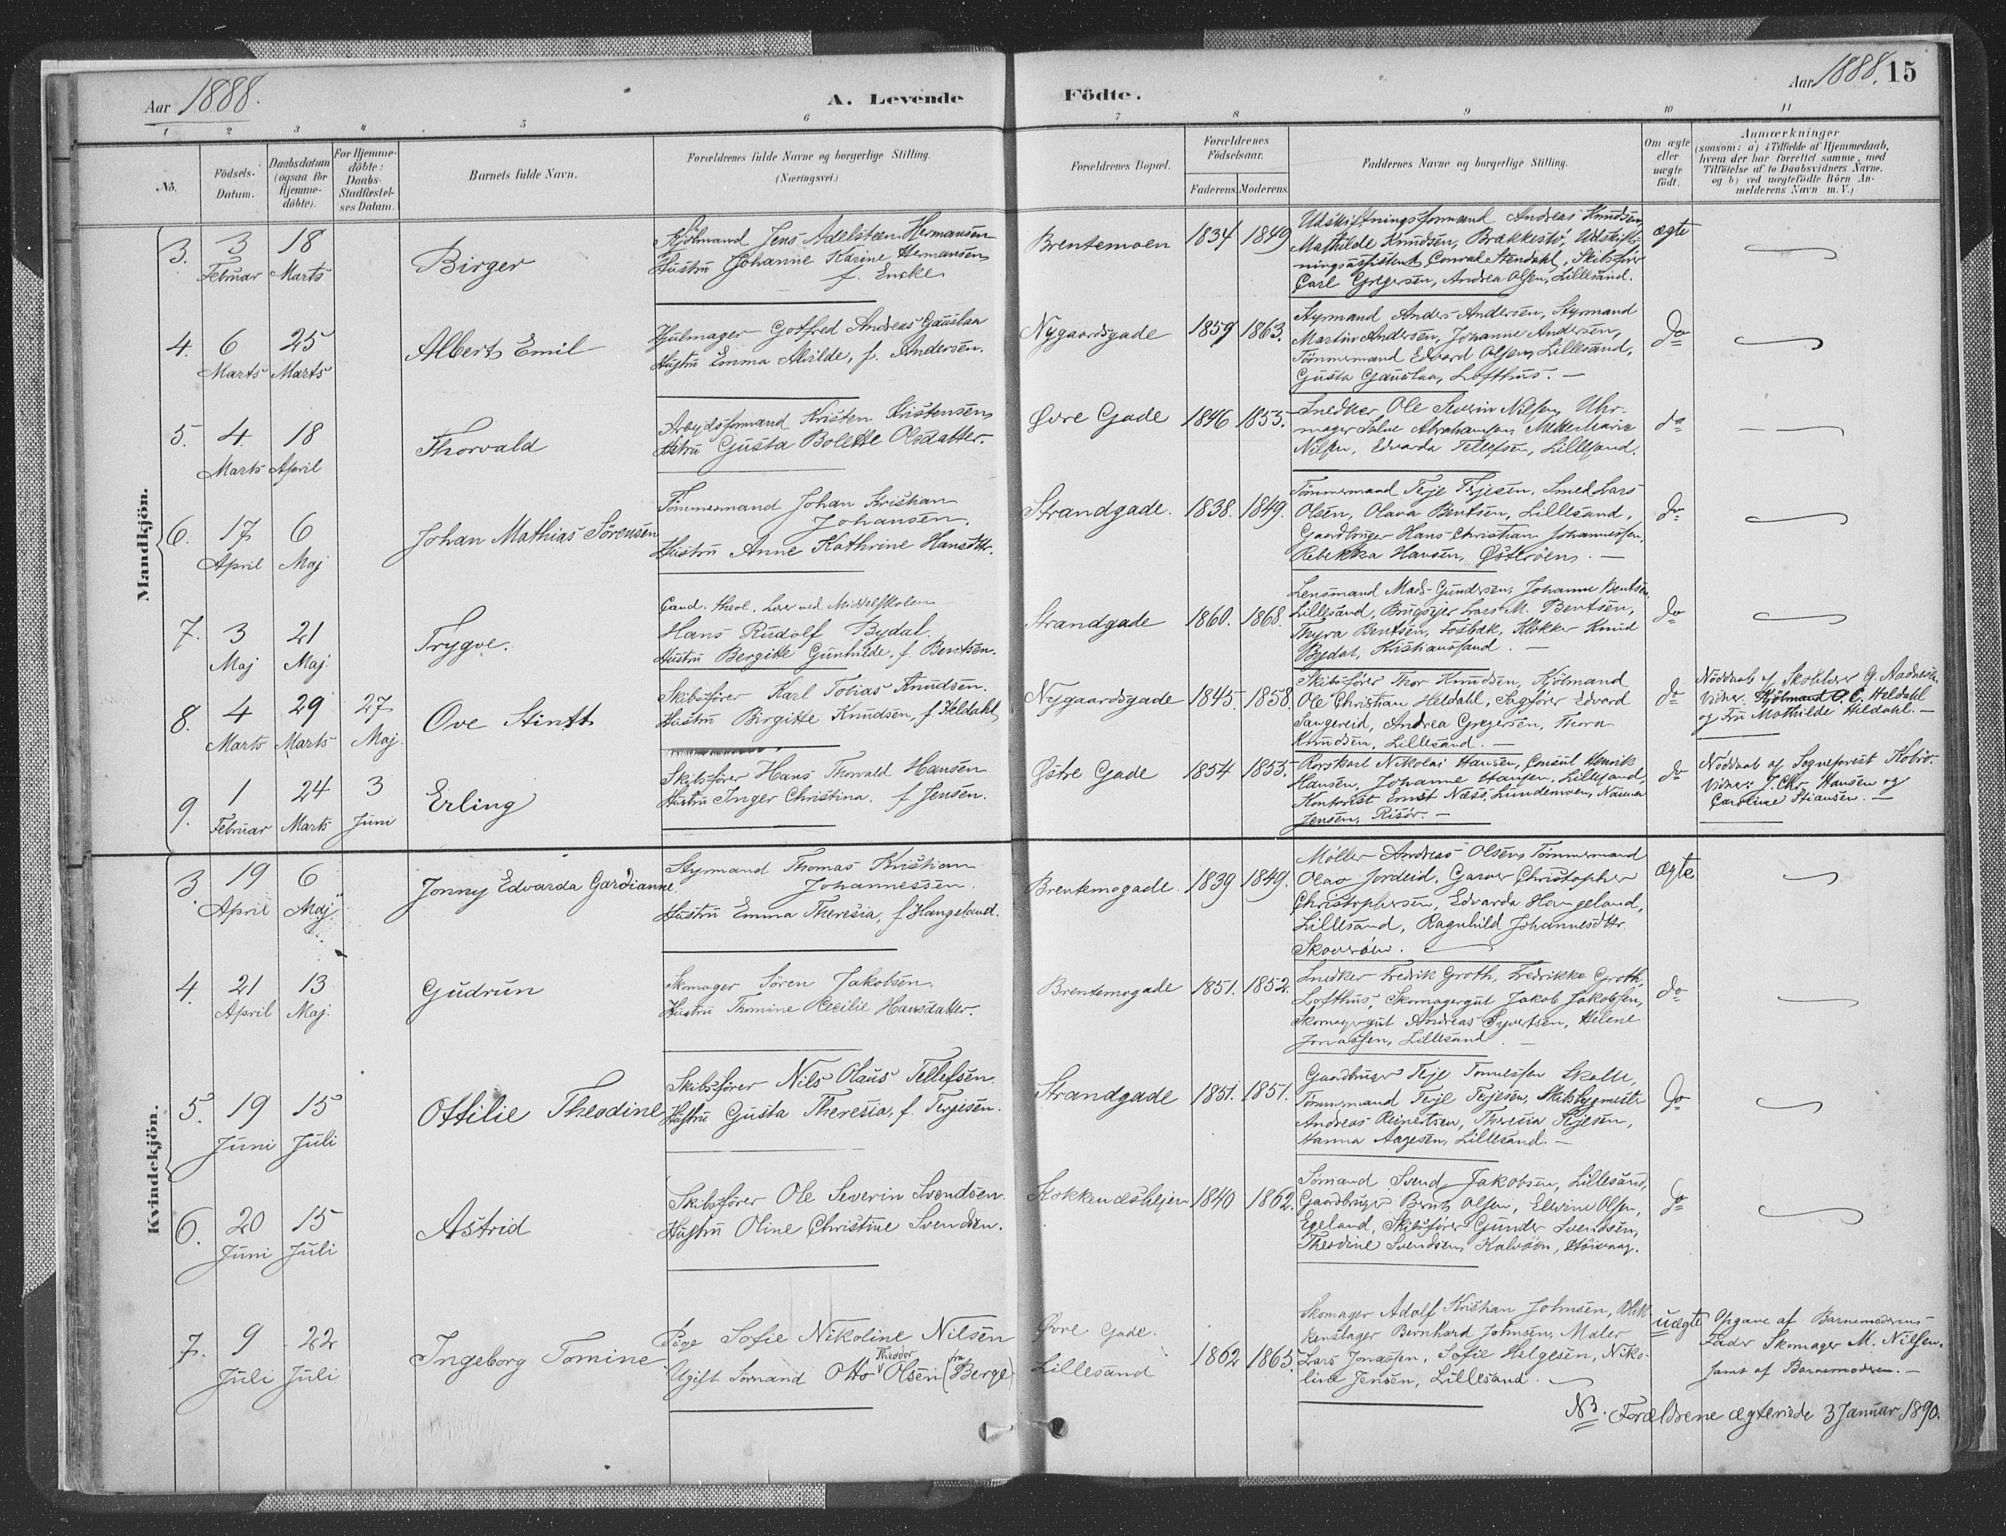 Aar 1888.
A. Levende Födte.
Aar 1888. 15
1 2 3 4 5 6 7 8 9 10 11
No.
Födsels-Datum.
Daabsdatum (ogsaa for Hjemmedöbte).
For Hjemmedöbte: Daabs-Stadfæstelses Datum.
Barnets fulde Navn.
Forældrenes fulde Navne og borgerlige Stilling. (Næringsvei.)
Forældrenes Bopæl.
Forældrenes Födselsaar.
Faderens. Moderens.
Faddernes Navne og borgerlige Stilling.
Om ægte eller uægte födt.
Anmærkninger
(saasom: a) i Tilfælde af Hjemmedaab,
hvem der har forrettet samme, med
Tilföielse af to Daabsvidners Navne,
og b) ved uægtefödte Börn Anmelderens Navn m. V.)
Mandkjön.
3. 3 Februar 18 Marts
Birger
Kjölmand Jens Adelsteen Hermansen
Hustru Johanne Karine Hermansen
f. Encke
Brentemoen 1834 1849
Udskiftningsformand Andreas Knudsen,
Mathilde Knudsen, Brækkestö, Udskift-
ningsassistent Conrad Stendahl, Skibsförer
Carl Gregersen, Andrea Olsen, Lillesand.
ægte
4. 6 Marts 25 Marts
Albert Emil
Hjulmager Gotfred Andreas Gauslaa
Hustru Emma Alvilde, f. Andersen.
Nygaardsgade 1859 1863.
Styrmand Anders Andersen, Styrmand
Martin Andersen, Johanne Andersen,
Tömmermand Edvard Olsen, Lillesand,
Gusta Gauslaa, Lofthus. —
do
5. 4 Marts 18 April
Thorvald
Arbejdsformand Kristen Kristensen
Hustru Gusta Bolette Olsdatter.
Øvre Gade 1846 1853.
Snedker Ole Severin Nilsen, Uhr-
mager Salve Abrahamsen, Mette Marie
Nilsen, Edvarda Tellefsen, Lillesand.
do
6. 17 April 6 Maj
Johan Mathias Sörensen
Tömmermand Johan Kristian
Johansen.
Hustru Anne Kathrine Hansdtr.
Strandgade. 1838. 1849.
Tömmermand Terje Terjesen, Smed Lars
Olsen, Olava Bentsen, Lillesand,
Gaardbruger Hans Christian Johannessen,
Rebekka Hansen, Østeröen. —
do
7. 3 Maj 21 Maj
Trygve.
Cand. theol. Lærer ved Middelskolen
Hans Rudolf Bydal.
Hustru Bergitte Gunhilde, f. Bentsen.
Strandgade 1860. 1868.
Lensmand Mads Gundersen, Johanne Bentsen,
Lillesand, Brugsejer Lars M. Bentsen,
Thyra Bentsen, Fosbæk, Klokker Knud
Bydal, Kristianssand. —
do
8. 4 Marts 29 Marts 27 Maj.
Ove Stintt
Skibsförer Karl Tobias Knudsen.
Hustru Birgitte Knudsen, f. Heldahl,
Nygaardsgade 1845. 1858.
Skibsförer Thor Knudsen, Kjöbmand
Ole Christian Heldahl, Sagförer Edvard
Sangereid, Andrea Gregersen, Thora
Knudsen, Lillesand. —
do
Nöddöb af Skolelærer G. Aadnesen
Vidner: Kjöbmand O. C. Heldahl
og Fru Mathilde Heldahl. —
9. 1 Februar 24 Marts 3 Juni
Erling
Skibsförer Hans Thorvald Hansen
Hustru Inger Christina, f. Jensen.
Østre Gade 1854 1853.
Rorskarl Nikolai Hansen, Consul Henrik
Hansen, Johanne Hansen, Lillesand,
Kontorist Ernst Næss, Lundemoen, Nanna
Jensen, Risör. —
do
Nöddaab af Sogneprest Kobro.
Vidner: J. Chr. Hansen og
Caroline Stiansen. —
Kvindekjön.
3. 19 April 6 Maj
Jonny Edvarda Gardianne
Styrmand Thomas Kristian
Johannessen.
Hustru Emma Theresia, f. Haugeland.
Brentemogade. 1839 1849.
Møller Andreas Olsen, Tömmermand
Olav Jordeid, Garver Christopher
Christophersen, Edvarda Haugeland,
Lillesand, Ragnhild Johannesdtr.
Skoveröen.
Ægte
4. 21 April 13 Maj.
Gudrun
Skomager Sören Jakobsen.
Hustru Thomine Cecilie Hansdatter.
Brentemogade 1851. 1852.
Snedker Fredrik Groth, Fredrikke Groth,
Lofthus, Skomagergut Jakob Jakobsen,
Skomagergut Andreas Syvertsen, Helene
Jonassen, Lillesand.
do
5. 19 Juni 15 Juli
Ottilie Theodine
Skibsförer Nils Olaus Tellefsen.
Hustru Gusta Theresia, f. Terjesen.
Strandgade 1851. 1851.
Gaardbruger Terje Tomessen Skalle,
Tömmermand Terje Terjesen, Skibsbygmester
Andreas Reinertsen, Theresia Terjesen,
Hanna Aagesen, Lillesand. —
do
6. 20 Juni 15 Juli
Astrid
Skibsförer Ole Severin Svendsen.
Hustru Oline Christine Svendsen.
Kokkenæshejen 1840 1862.
Sömand Svend Jakobsen, Lillesand,
Gaardbruger Bernt Olsen, Elevine Olsen,
Egeland, Skibsförer Gunder Svendsen,
Theodine Svendsen, Kalvöen, Høivaag.
do
7. 9 Juli 22 Juli
Ingeborg Tomine
Pige Sofie Nikoline Nilsen
Ugift Sömand Otto Theodor Olsen (fra Berge)
Øvre Gade.
Lillesand 1862 1865.
Skomager Adolf Kristian Johnsen, Blik-
kenslager Bernhard Johnsen, Maler
Lars Jonassen, Sofie Helgesen, Niko-
line Jensen, Lillesand.
uægte
Opgave af Barnemoderens
Fader Skomager M. Nilsen.
samt af Barnemoderen. —
NB. Forældrene ægteviede 3 Januar 1890.